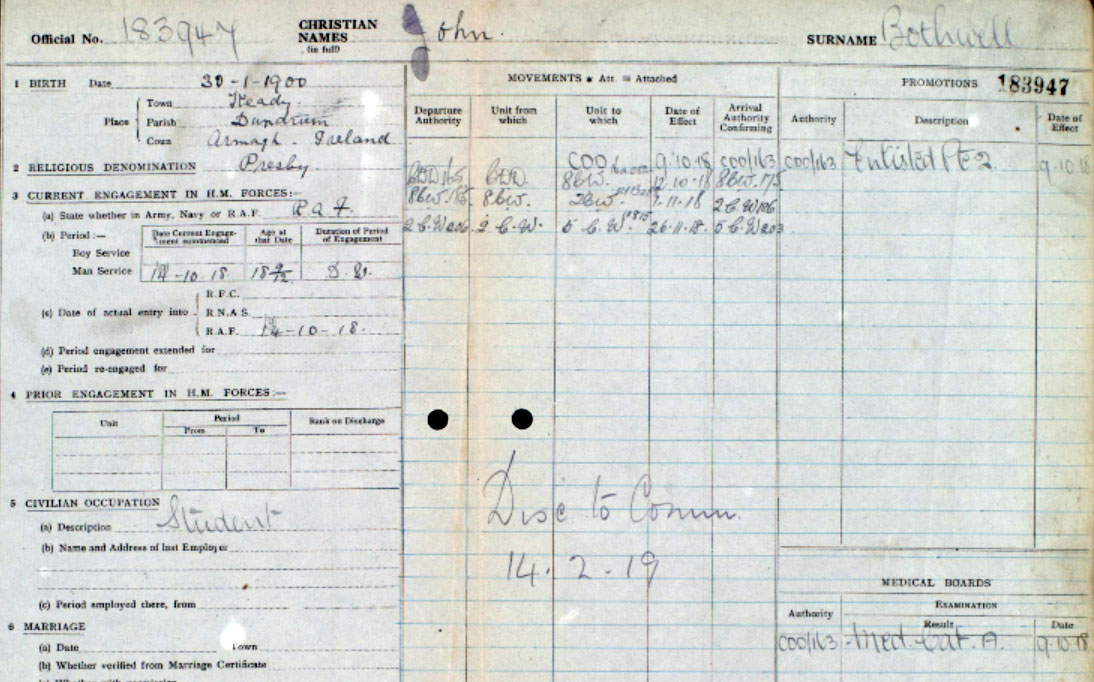 Official No. 183947 CHRISTIAN NAMES (in full) John. SURNAME Bothwell
1 BIRTH Date 30-1-1900
Place Town Keady.
Parish Dundrum
Coun Armagh. Ireland
2 RELIGIOUS DENOMINATION Presby.
3 CURRENT ENGAGEMENT IN H.M. FORCES:—
(a) State whether in Army, Navy or R.A.F. R a F.
(b) Period :— Date Current Engagement commenced Age at that Date Duration of Period of Engagement
Boy Service
Man Service 14-10.18. 18 9/12 D.W.
R.F.C.
(c) Date of actual entry into R.N.A.S.
R.A.F. 14-10-18.
(d) Period engagement extended for
(e) Period re-engaged for
4 PRIOR ENGAGEMENT IN H.M. FORCES :—
Unit Period Rank on Discharge
From To
5 CIVILIAN OCCUPATION
(a) Description Student
(b) Name and Address of last Employer
(c) Period employed there, from
6 MARRIAGE
(a) Date Town
(b) Whether verified from Marriage Certificate
MOVEMENTS * Att. = Attached
Departure Authority Unit from which Unit to which Date of Effect Arrival Authority Confirming
COD 9.10.18 COD/163
8CW. 12.10.18 8CW.175
8CW.185 8CW. 2CW. 1.11.18 2C.W106
2C.W206. 2 C.W. 5 C.W. 26.11.18. 5 C.W203
Disc to Comm.
14.2.19
PROMOTIONS 183947
Authority Description Date of Effect
COD/163 Enlisted Pte 2 9.10.18
MEDICAL BOARDS
Authority EXAMINATION
Result Date
COD/163 Med. Cat. A. 9.10.18